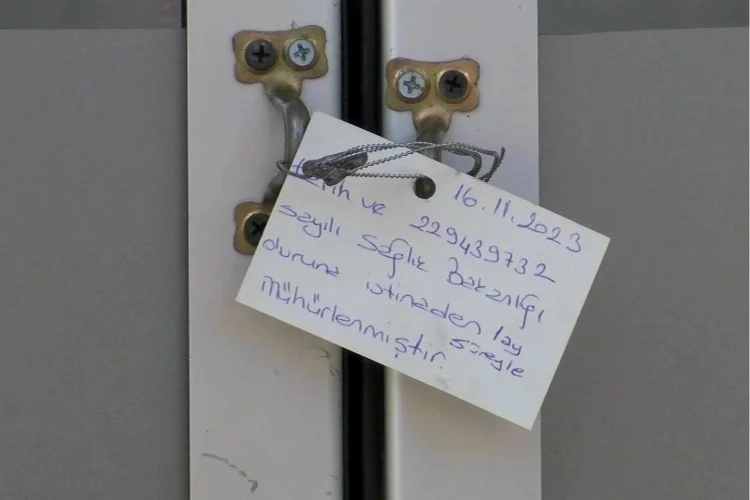 16.11.2023
tarih ve 229439732
sayılı Sağlık Bakanlığı
oluruna istinaden 1ay
süreyle
mühürlenmiştir.